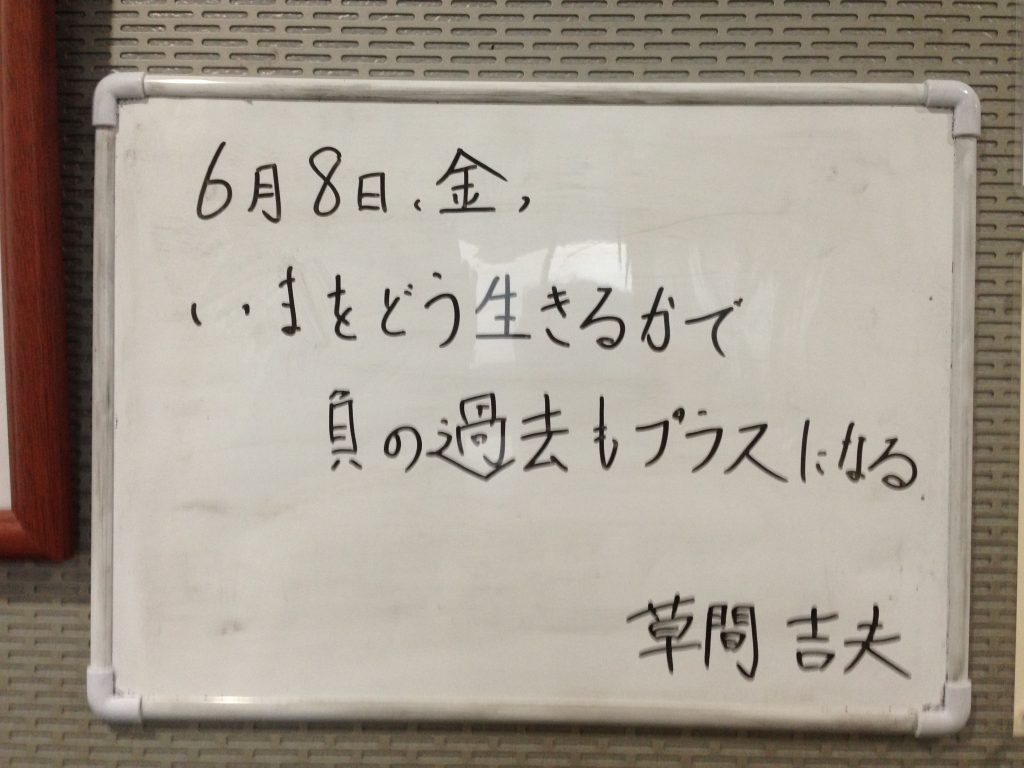 6月8日、金、
いまをどう生きるかで
負の過去もプラスになる
草間 吉夫